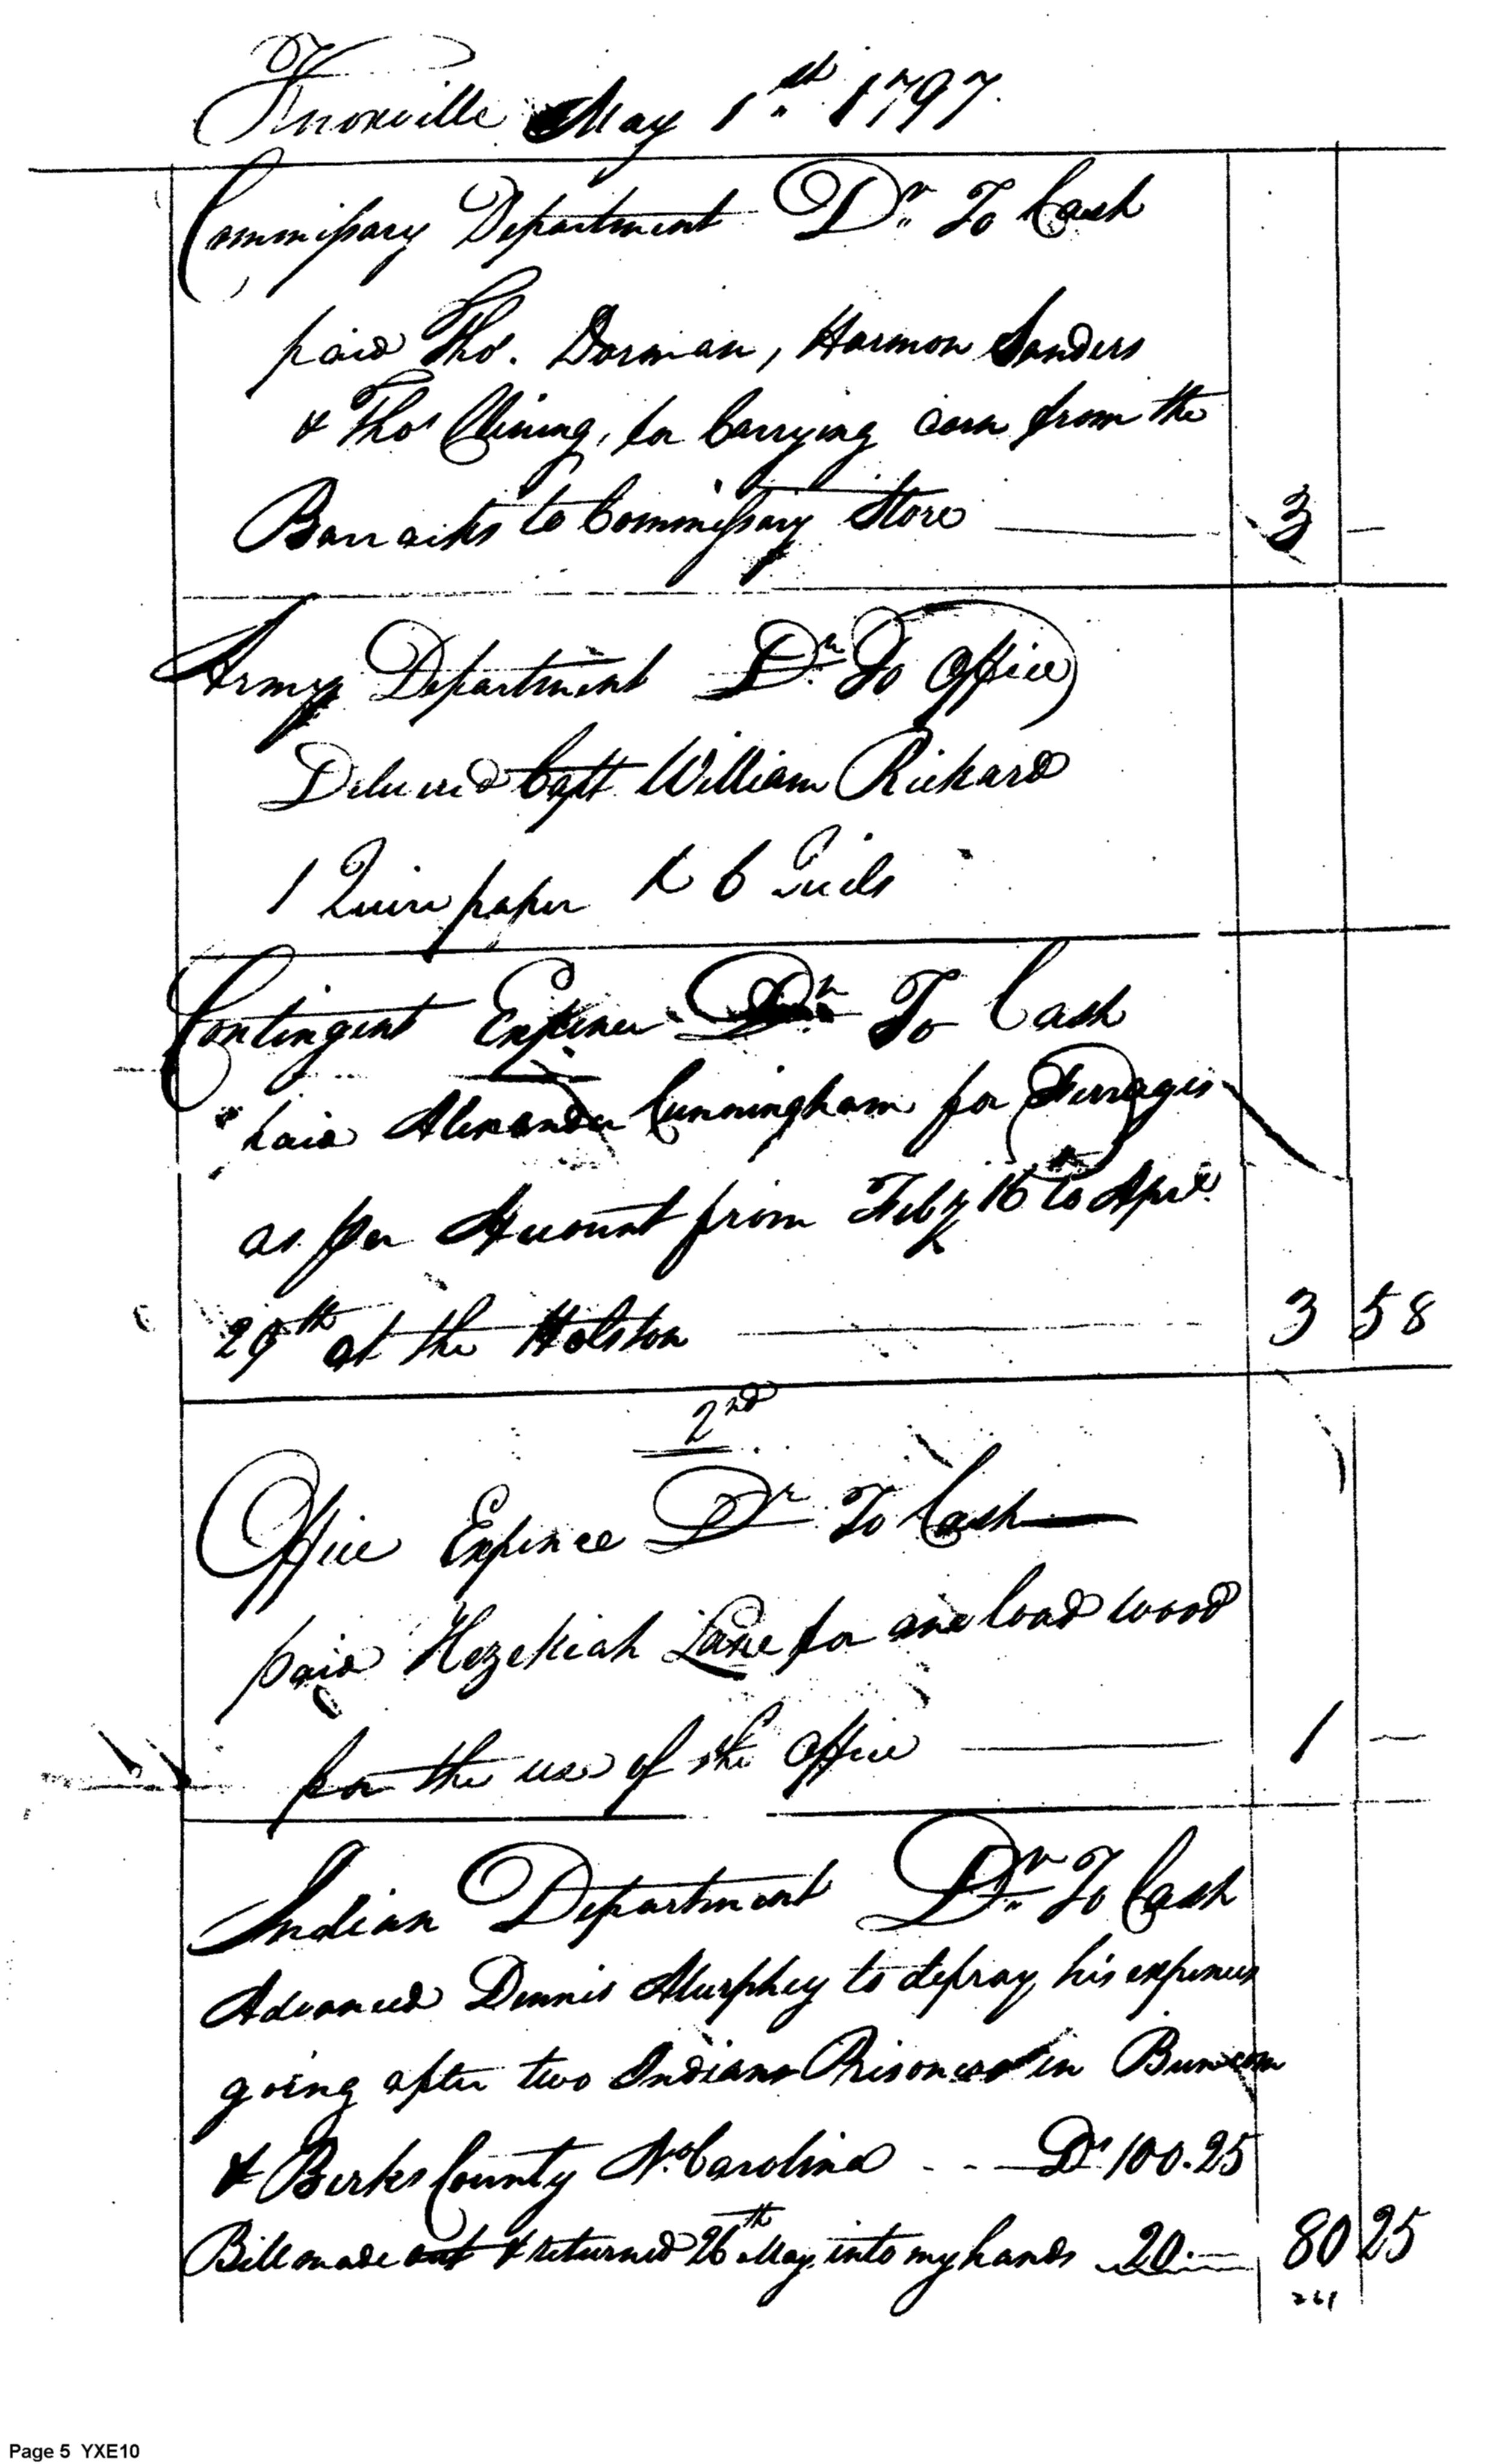 Knoxville May 1st 1797.
Commissary Department Dr. To Cash
paid Tho. Dorman, Harmon Sanders
& Thos Vining, for Carrying corn from the
Barracks to Commissary Store 3 —
Army Department Dr. To Office
Delivered Capt William Rickard
1 Quire paper & 6 Quils
Contingent Expence Dr To Cash
paid Alexander Cunningham for Ferrages
as per Account from Feby 16 to Apl.
29th at the Holston 3 58
2nd
Office Expence Dr To Cash
paid Hezekiah Lane for one load wood
for the use of the Office 1 —
Indian Department Dr. To Cash
Advanced Dennis Murphey to defray his expences
going after two Indians Prisoners in Buncom
& Berks County No. Carolina - - Ds 100.25
Bill made out & returned 26th May into my hands 20.— 80 25
261
Page 5 YXE10